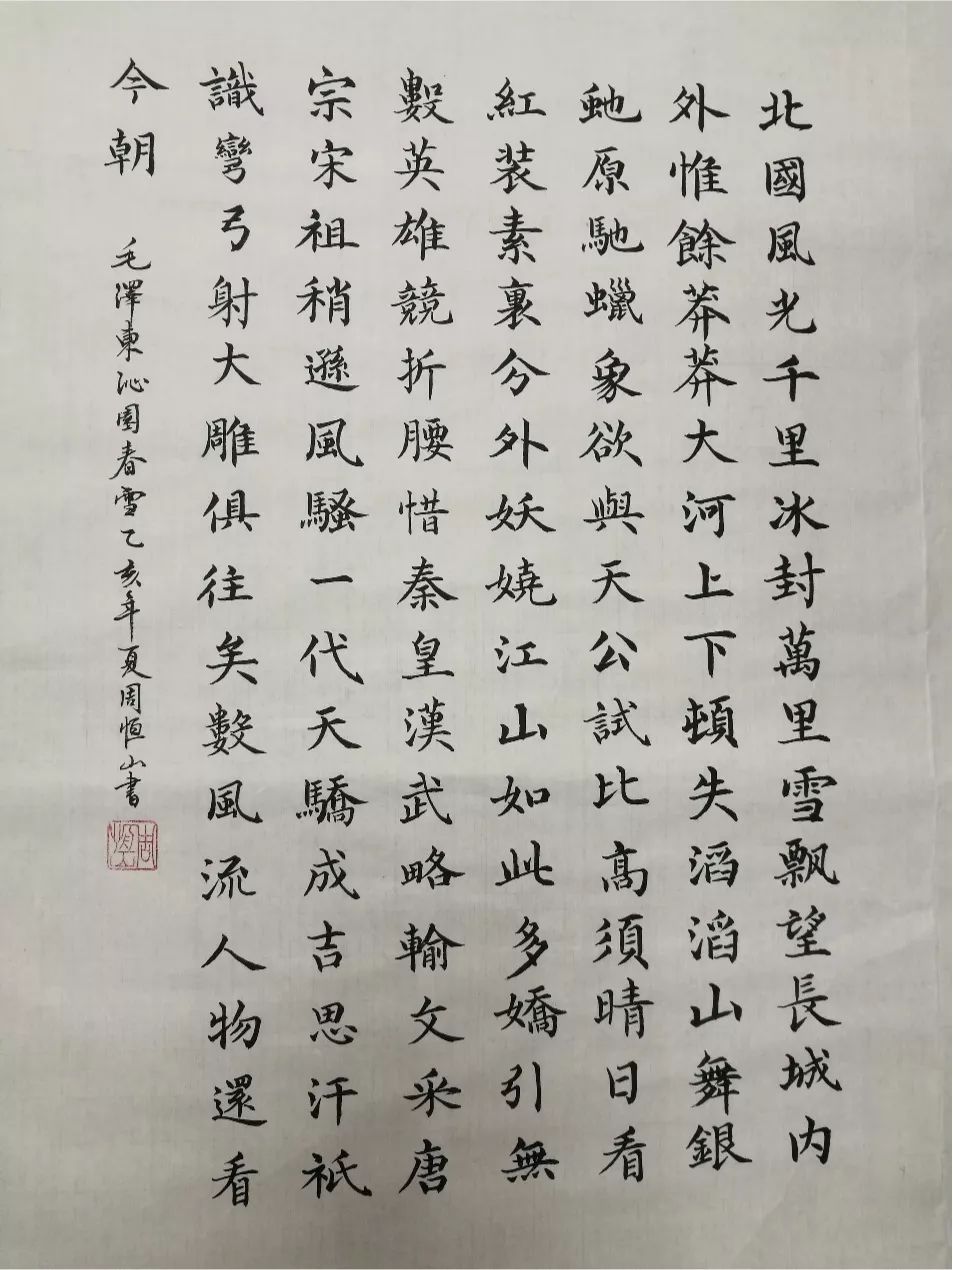 北國風光千里冰封萬里雪飄望長城内
外惟餘莽莽大河上下頓失滔滔山舞銀
虵原馳蠟象欲與天公試比高須晴日看
紅装素裹分外妖嬈江山如此多嬌引無
數英雄競折腰惜秦皇漢武略輸文采唐
宗宋祖稍遜風騷一代天驕成吉思汗祇
識彎弓射大雕俱往矣數風流人物還看
今朝
毛澤東沁園春雪乙亥年夏周恒山書